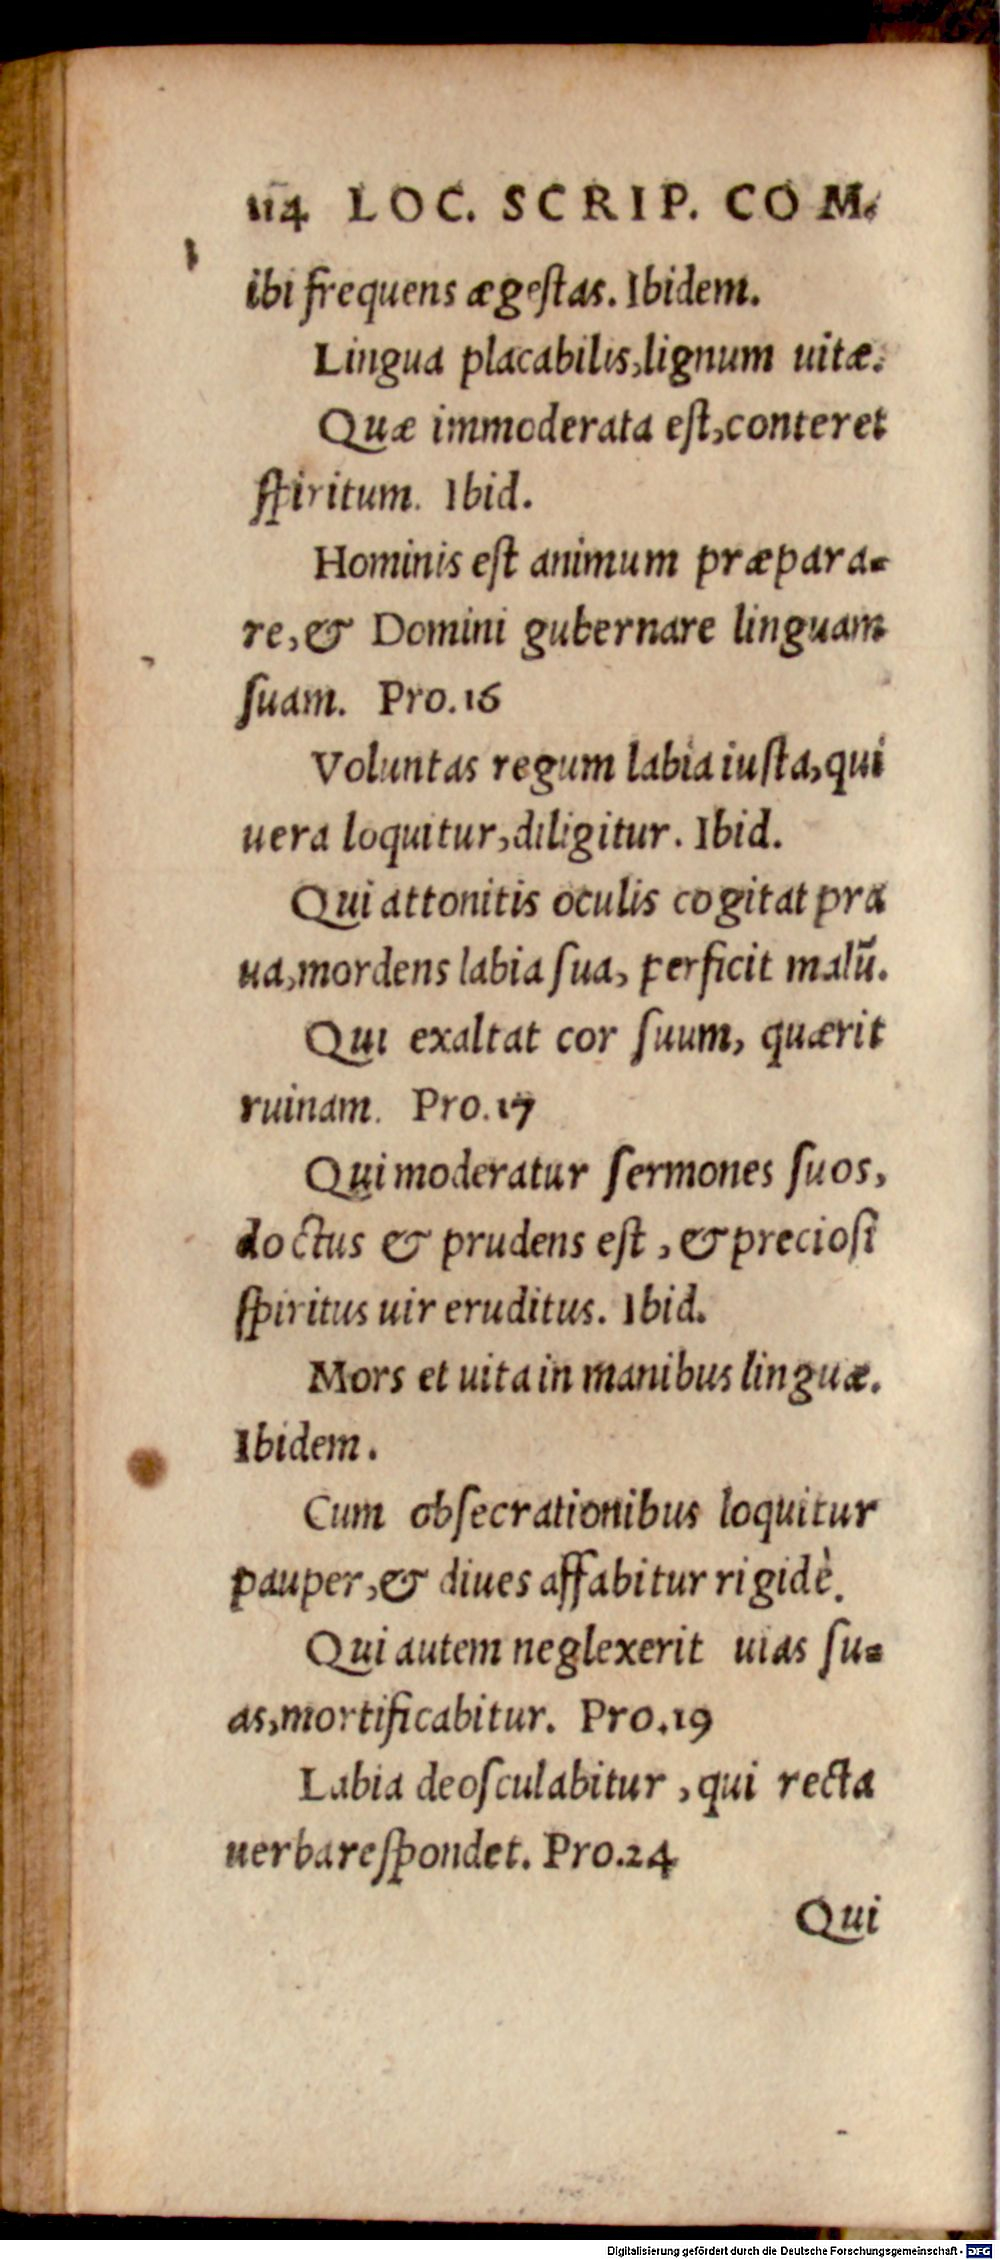 114 LOC. SCRIP. COM.
ibi frequens ægestas. Ibidem.
Lingua placabilis, lignum uitæ.
Quæ immoderata est, conteret
spiritum. Ibid.
Hominis est animum præpara-
re, & Domini gubernare linguam
suam. Pro.16
Voluntas regum labia iusta, qui
uera loquitur, diligitur. Ibid.
Qui attonitis oculis cogitat pra
ua, mordens labia sua, perficit malũ.
Qui exaltat cor suum, quærit
ruinam. Pro.17
Qui moderatur sermones suos,
doctus & prudens est, & preciosi
spiritus uir eruditus. Ibid.
Mors et uita in manibus linguæ.
Ibidem.
Cum obsecrationibus loquitur
pauper, & diues affabitur rigidè.
Qui autem neglexerit uias su-
as, mortificabitur. Pro.19
Labia deosculabitur, qui recta
uerba respondet. Pro.24
Qui
Digitalisierung gefördert durch die Deutsche Forschungsgemeinschaft - DFG